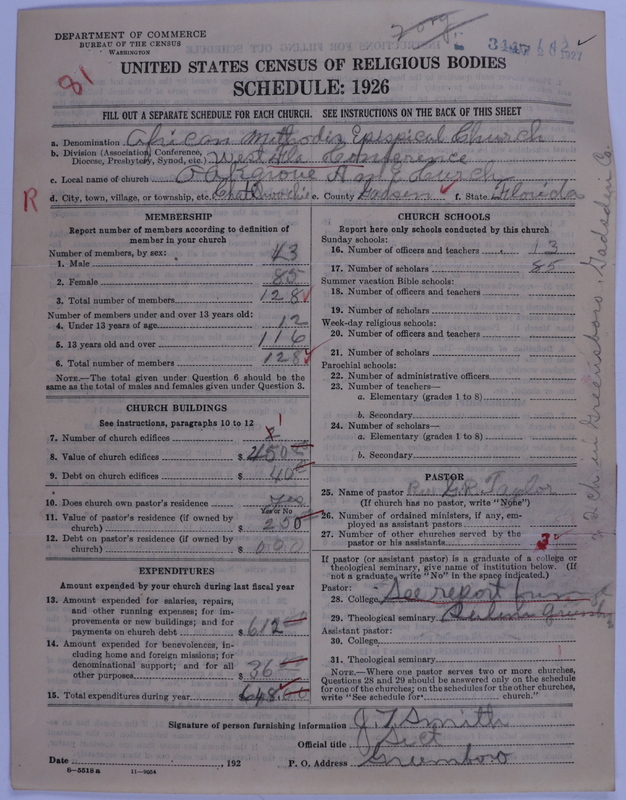 DEPARTMENT OF COMMERCE
BUREAU OF THE CENSUS
WASHINGTON
81
UNITED STATES CENSUS OF RELIGIOUS BODIES
SCHEDULE: 1926
FILL OUT A SEPARATE SCHEDULE FOR EACH CHURCH. SEE INSTRUCTIONS ON THE BACK OF THIS SHEET
a. Denomination African Methodiz Epispical Church
b. Division (Association, Conference, Diocese, Presbytery, Synod, etc.) West Fla Conference
c. Local name of church A M E Church
R
d. City, town, village, or township, etc. e. County Gadsen f. State Florida
MEMBERSHIP
Report number of members according to definition of member in your church
Number of members, by sex:
1. Male 43
2. Female 85
3. Total number of members 128
Number of members under and over 13 years old:
4. Under 13 years of age 12
5. 13 years old and over 116
6. Total number of members 128
NOTE.—The total given under Question 6 should be the same as the total of males and females given under Question 3.
CHURCH BUILDINGS
See instructions, paragraphs 10 to 12
7. Number of church edifices 1
8. Value of church edifices $
9. Debt on church edifices $ 40
10. Does church own pastor's residence yes
Yes or No
11. Value of pastor's residence (if owned by church) $ 250
12. Debt on pastor's residence (if owned by church) $ 000
EXPENDITURES
Amount expended by your church during last fiscal year
13. Amount expended for salaries, repairs, and other running expenses; for improvements or new buildings; and for payments on church debt $ 612
14. Amount expended for benevolences, including home and foreign missions; for denominational support; and for all other purposes $ 36
15. Total expenditures during year 648.00
CHURCH SCHOOLS
Report here only schools conducted by this church
Sunday schools:
16. Number of officers and teachers 13
17. Number of scholars 85
Summer vacation Bible schools:
18. Number of officers and teachers
19. Number of scholars
Week-day religious schools:
20. Number of officers and teachers
21. Number of scholars
Parochial schools:
22. Number of administrative officers
23. Number of teachers—
a. Elementary (grades 1 to 8)
b. Secondary
24. Number of scholars—
a. Elementary (grades 1 to 8)
b. Secondary
PASTOR
25. Name of pastor Rev G. R. Taylor
(If church has no pastor, write "None")
26. Number of ordained ministers, if any, employed as assistant pastors
27. Number of other churches served by the pastor or his assistants 3
If pastor (or assistant pastor) is a graduate of a college or theological seminary, give name of institution below. (If not a graduate, write "No" in the space indicated.)
Pastor:
28. College See report from
29. Theological seminary
Assistant pastor:
30. College
31. Theological seminary
NOTE.—Where one pastor serves two or more churches, Questions 28 and 29 should be answered only on the schedule for one of the churches; on the schedules for the other churches, write "See schedule for church."
2 ch in Greensboro, Gadsden Co.
Signature of person furnishing information J. T. Smith
Official title Sect
Date , 192 P. O. Address
8-5518 a 11-9654